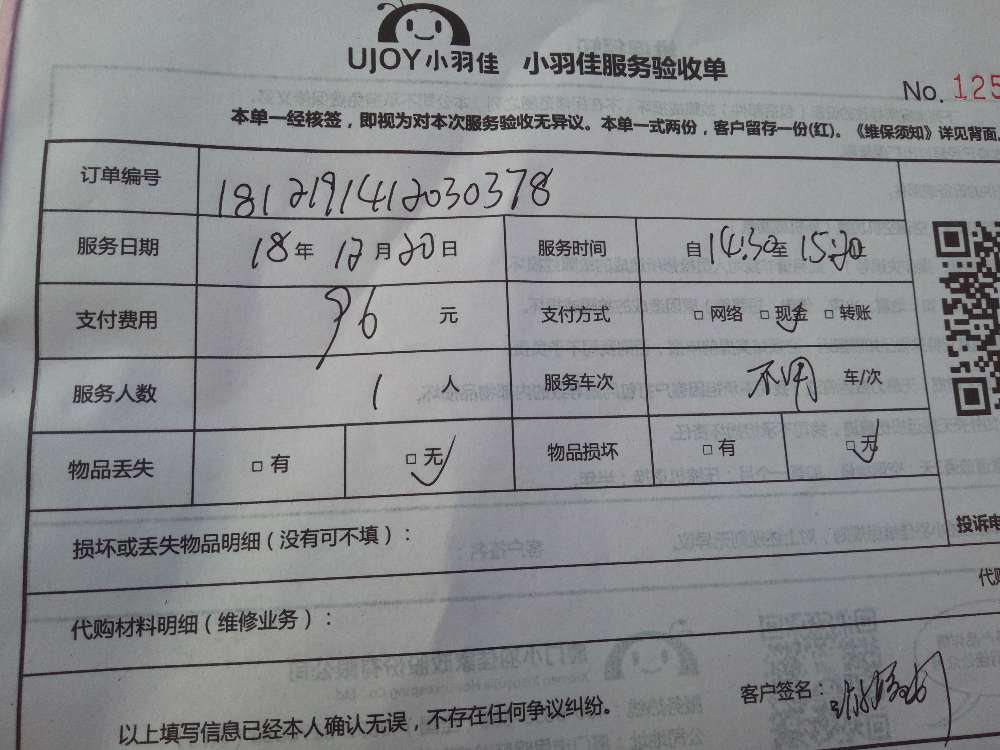 UJOY小羽佳 小羽佳服务验收单
No. 125
本单一经核签，即视为对本次服务验收无异议。本单一式两份，客户留存一份(红)。《维保须知》详见背面.
订单编号 181219141203​0378
服务日期 18年 12月20日 服务时间 自14:30至15:20
支付费用 96 元 支付方式 □ 网络 □ 现金 □ 转账
服务人数 1 人 服务车次 不用 车/次
物品丢失 □ 有 □ 无 物品损坏 □ 有 □ 无
损坏或丢失物品明细（没有可不填）：
投诉电
代购
代购材料明细（维修业务）：
客户签名：
以上填写信息已经本人确认无误，不存在任何争议纠纷。